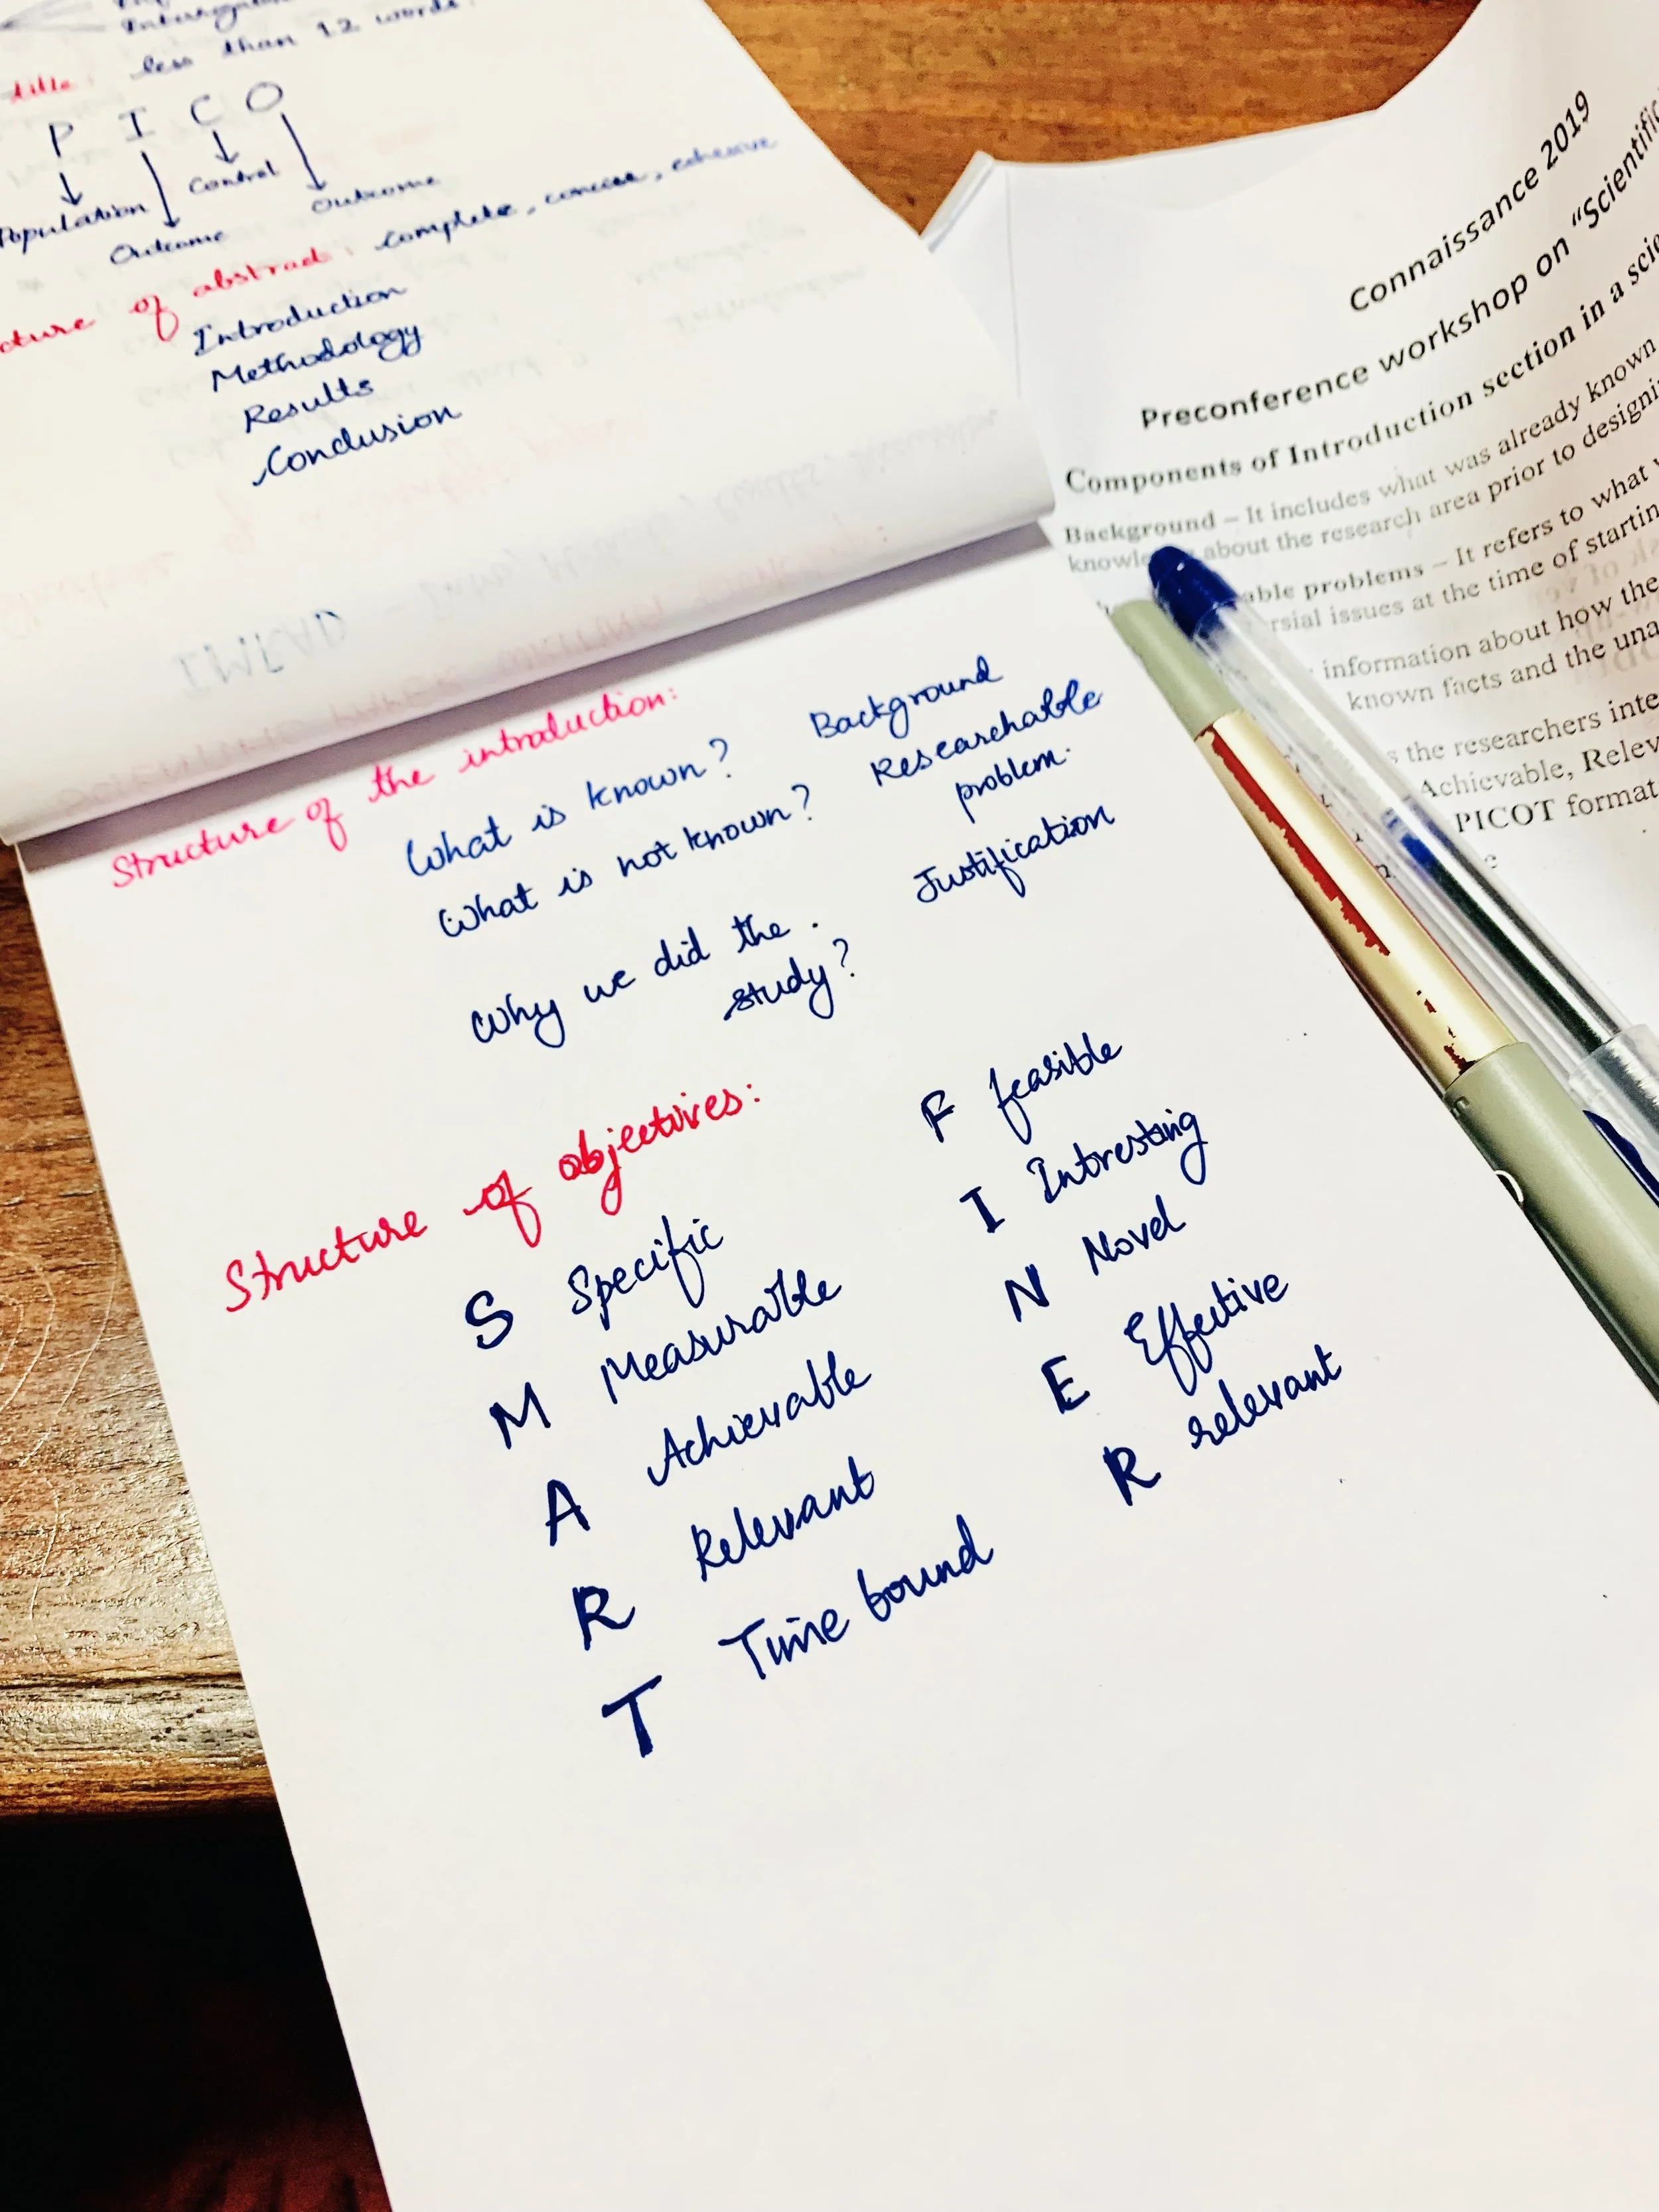 less than 12 words.
title:
P I C O
Population
Control
Outcome
Outcome
of abstract: complete, concise, cohesive
Introduction
Methodology
Results
Conclusion
IMRAD
Structure of the introduction:
What is known? Background
What is not known? Researchable
problem.
Why we did the . Justification
study?
Structure of objectives:
S Specific
M Measurable
A Achievable
R Relevant
T Time bound
F feasible
I Intresting
N Novel
E Effective
R relevant
Connaissance 2019
Preconference workshop on "Scientific
Components of Introduction section in a
Background – It includes what was already known
about the research area prior to
problems – It refers to what
issues at the time of
information about how the
known facts and the
the researchers
Achievable,
PICOT format